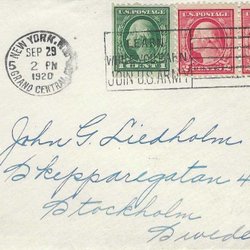 NEW YORK, N.Y.
SEP 29
2 PM
1920
GRAND CENTRAL
U.S. POSTAGE
1 CENT 1
U.S. POSTAGE
LEARN
JOIN U.S. ARMY
John G. Liedholm
Skepparegatan 4
Stockholm
Sweden